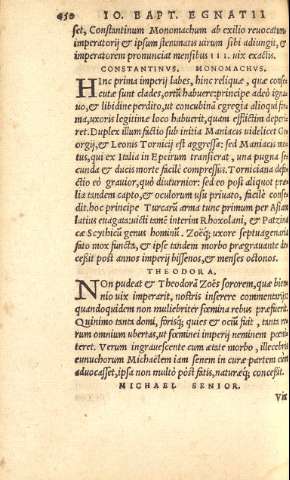 650 IO. BAPT. EGNATII
set, Constantinum Monomachum ab exilio reuocatum
imperatorij & ipsum stemmatis uirum sibi adiungit, &
imperatorem pronunciat mensibus III. uix exactis.
CONSTANTINVS. MONOMACHVS.
HInc prima imperij labes, hinc reliquæ, quæ consecutæ
sunt clades, orta habuere: principe adeò igna
uo, & libidine perdito, ut concubina egregia alioqui forma,
uxoris legitimæ loco habuerit, quam efflictim deperi
ret. Duplex illum factio sub initia Maniacis uidelicet Georgij,
& Leonis Tornicij est aggressa: sed Maniaci mo
tus, qui ex Italia in Epeirum transierat, una pugna se
cunda & ducis morte facilè compressus. Torniciana defe
ctio eò grauior, quò diuturnior: sed eo post aliquot præ
lia tandem capto, & oculorum usu priuato, facilè consedit.
hoc principe Turcarũ arma tunc primum per Asiam
latius euagata: uicti euḿq; interim Rhoxolani, & Patzinacæ
Scythicũ genus hominũ. Zoëq; uxore septuagenaria
fato mox functa, & ipse tandem morbo prægrauante decessit
post annos imperij bissenos, & menses octonos.
THEODORA.
NOn pudeat & Theodorã Zoës sororem, quæ bien
nio uix imperarit, nostris inserere commentarijs:
quandoquidem non muliebriter fœmina rebus præfuerit.
Quinimo tanta domi, forisq; quies & ociũ fuit, tanta re
rum omnium ubertas, ut fœminei imperij neminem pœni
teret. Verum ingrauescente cum ætate morbo, illecebris
eunuchorum Michaëlem iam senem in curæ partem cùm
aduocasset, ipsa non multò pòst fatis, naturæq; concessit.
MICHAEL SENIOR.
Vix